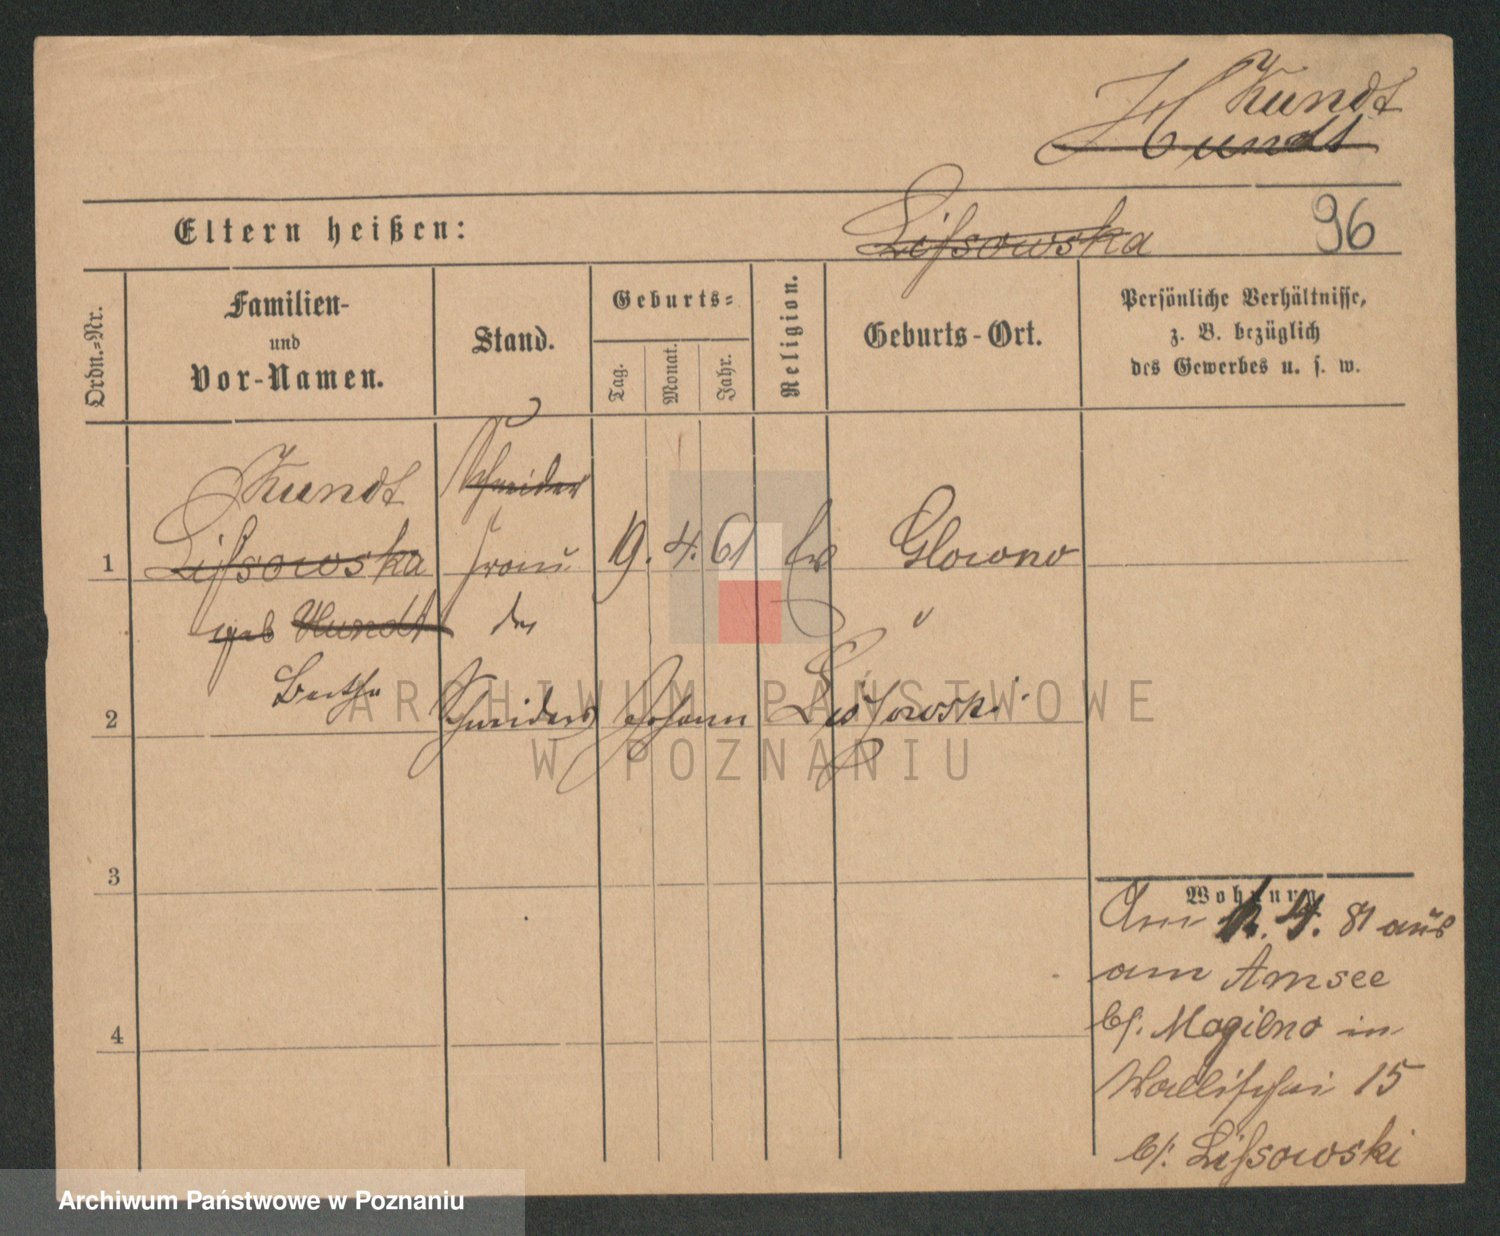 Kundt
Hundt
Eltern heißen:
Lissowska
96
Ordn.=Nr.
Familien-
und
Vor-Namen.
Stand.
Geburts=
Tag.
Monat.
Jahr.
Religion.
Geburts-Ort.
Persönliche Verhältnisse,
z. B. bezüglich
des Gewerbes u. s. w.
Kundt
Schneider
1
Lissowska
Frau
19. 4. 61
ev
Glowno
geb Hundt
des
"
Bertha
2
Schneiders Johann Lissowski
3
4
Wohnung
Am 4. 81 aus
am Amsee
b/. Mogilno in
Wallischei 15
b/. Lissowski
ARCHIWUM PAŃSTWOWE
W POZNANIU
Archiwum Państwowe w Poznaniu